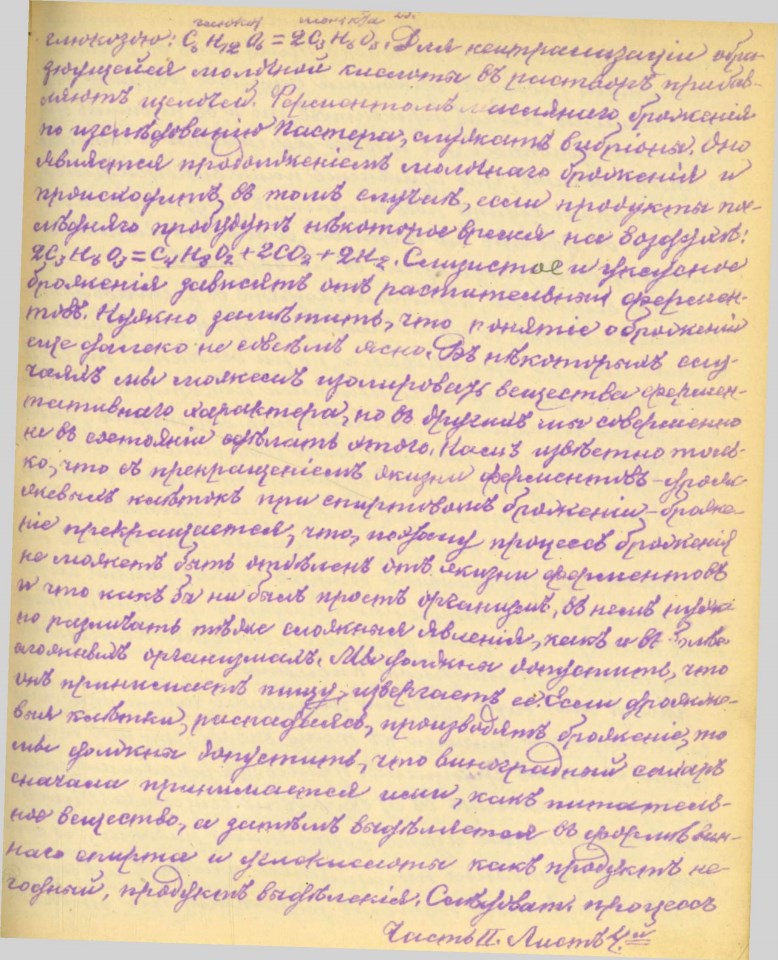 глюкоза молочная к.
глюкозою: C₆H₁₂O₆ = 2C₃H₆O₃. Для нейтрализаціи обра-
зующейся молочной кислоты въ растворъ прибав-
ляютъ щелочей. Ферментомъ маслянаго броженія
по изслѣдованію Пастера, служатъ вибріоны. Оно
является продолженіемъ молочнаго броженія и
происходитъ въ томъ случаѣ, если продукты по-
слѣдняго пробудутъ нѣкоторое время на воздухѣ:
2C₃H₆O₃ = C₄H₈O₂ + 2CO₂ + 2H₂. Слизистое и уксусное
броженія зависятъ отъ растительныхъ фермен-
товъ. Нужно замѣтить, что понятіе о броженіи
еще далеко не совсѣмъ ясно. Въ нѣкоторыхъ слу-
чаяхъ мы можемъ изолировать вещества фермен-
тативнаго характера, но въ другихъ мы совершенно
не въ состояніи сдѣлать этого. Намъ извѣстно толь-
ко, что съ прекращеніемъ жизни ферментовъ - дрож-
жевыхъ клѣтокъ при спиртовомъ броженіи - броже-
ніе прекращается, что, поэтому процессъ броженія
не можетъ быть отдѣленъ отъ жизни ферментовъ
и что какъ бы ни былъ простъ организмъ, въ немъ нужно
но различать тѣже сложныя явленія, какъ и въ болѣе
сложныхъ организмахъ. Мы должны допустить, что
онъ принимаетъ пищу, извергаетъ ее. Если дрожже-
выя клѣтки, распадаясь, производятъ броженіе, то
мы должны допустить, что виноградный сахаръ
сначала принимается ими, какъ питатель-
ное вещество, а затѣмъ выдѣляется въ формѣ вин-
наго спирта и углекислоты какъ продуктъ не-
годный, продуктъ выдѣленія. Слѣдоват. процессъ
Часть II. Листъ 4.й